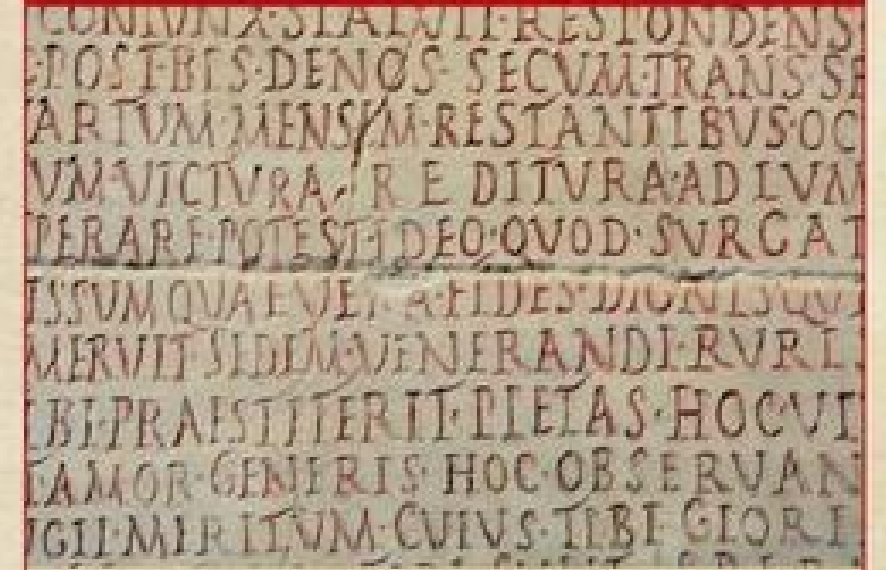 CONIUNX·STATUIT·RESPONDENS·
·POST·BIS·DENOS·SECUM·TRANS·SE
ARTUM·MENSEM·RESTANTIBUS·OC
UM·VICTURA· REDITURA·AD LUM
PERARE·POTEST·IDEO·QUOD·SURGAT
ISSUM QUAE VERA·FIDES·DIGNIS QUI
MERUIT SEDEM·VENERANDI·RURI
IBI·PRAESTITERIT·PIETAS·HOC UT
T AMOR·GENERIS·HOC·OBSERVAN
UGII·MERITUM·CUIUS·TIBI GLORI